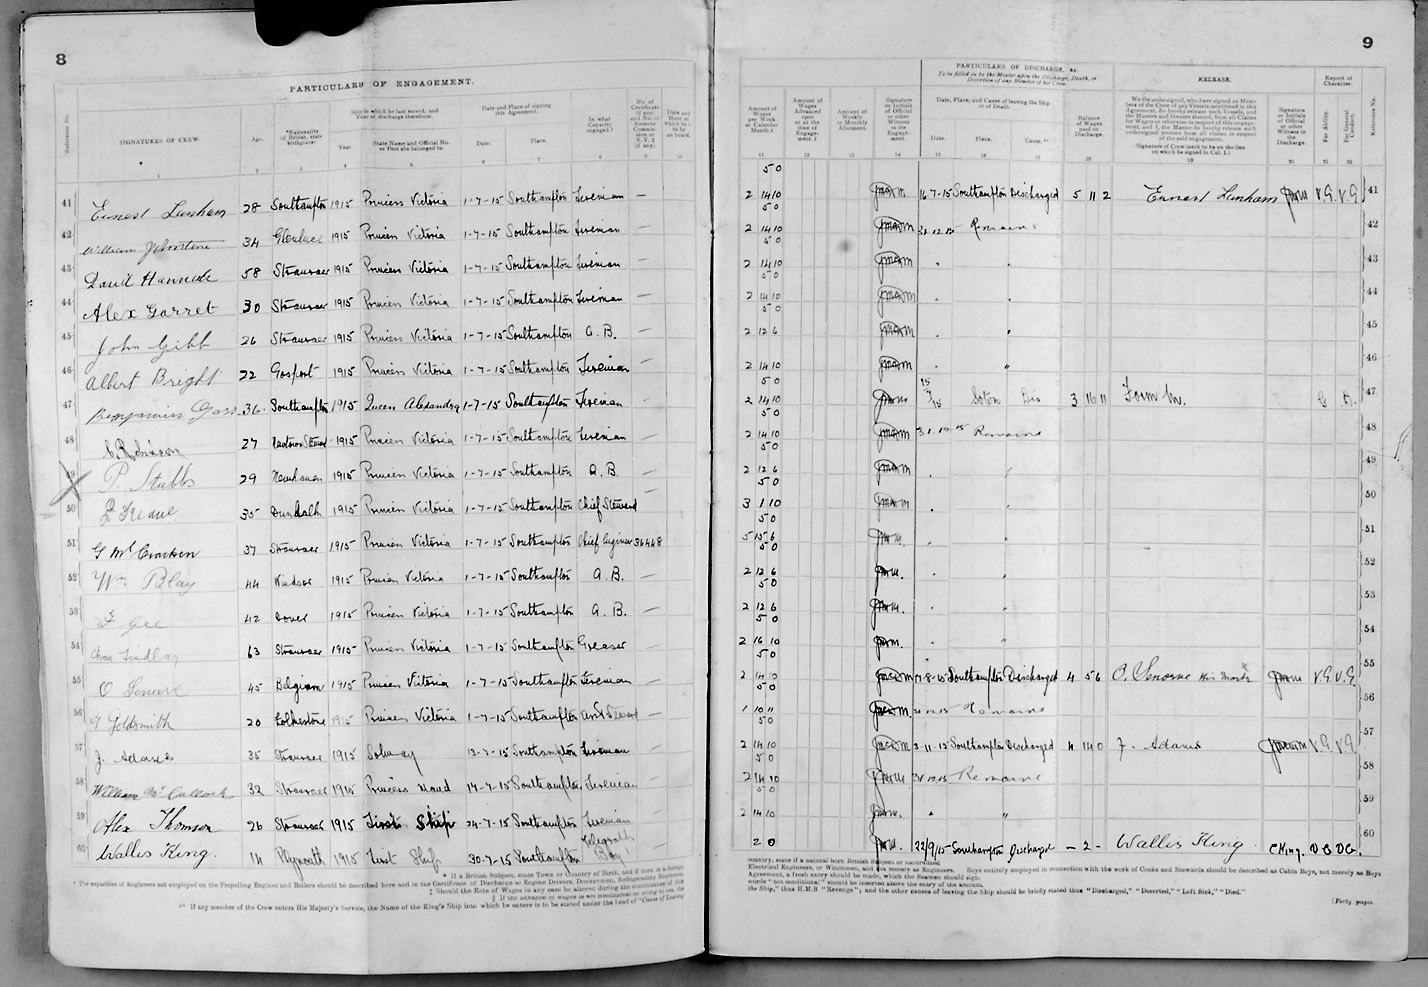 8
PARTICULARS OF ENGAGEMENT.
Reference No.
SIGNATURES OF CREW.
Age.
*Nationality (if British, state birthplace)
Ship in which he last served, and Year of discharge therefrom.
Year.
State Name and Official No. or Port she belonged to.
Date and Place of signing this Agreement.
Date.
Place.
In what Capacity engaged.†
No. of Certificate (if any) and No. of Reserve Commission or R.V.2 (if any).
Date and Hour at which he is to be on board.
1 2 3 4 5 6 7 8 9 10
41 Ernest Lanham 28 Southampton 1915 Princess Victoria 1-7-15 Southampton Fireman —
42 William Johnstone 34 Glenluce 1915 Princess Victoria 1-7-15 Southampton Fireman —
43 David Hannah 58 Stranraer 1915 Princess Victoria 1-7-15 Southampton Fireman —
44 Alex Garret 30 Stranraer 1915 Princess Victoria 1-7-15 Southampton Fireman —
45 John Gibb 26 Stranraer 1915 Princess Victoria 1-7-15 Southampton A.B. —
46 Albert Bright 22 Gosport 1915 Princess Victoria 1-7-15 Southampton Fireman —
47 Benjamin Goss 36 Southampton 1915 Queen Alexandra 1-7-15 Southampton Fireman —
48 C. Robinson 27 1915 Princess Victoria 1-7-15 Southampton Fireman —
49 P. Stubbs 29 Newhaven 1915 Princess Victoria 1-7-15 Southampton A.B. —
50 Keane 35 Dundalk 1915 Princess Victoria 1-7-15 Southampton Chief Steward
51 G McCracken 37 Stranraer 1915 Princess Victoria 1-7-15 Southampton Chief Engineer 36448
52 Wm Blay 44 Windsor 1915 Princess Victoria 1-7-15 Southampton A.B. —
53 F Gee 42 Dover 1915 Princess Victoria 1-7-15 Southampton A.B. —
54 Chas Findlay 63 Stranraer 1915 Princess Victoria 1-7-15 Southampton Greaser —
55 O Senorve 45 Belgium 1915 Princess Victoria 1-7-15 Southampton Fireman —
56 Goldsmith 20 Folkestone 1915 Princess Victoria 1-7-15 Southampton Asst Steward —
57 J. Adams 35 Stranraer 1915 Solway 13-7-15 Southampton Fireman —
58 William McCulloch 32 Stranraer 1915 Princess Maud 14-7-15 Southampton Fireman —
59 Alex Thomson 26 Stranraer 1915 First Ship 24-7-15 Southampton Fireman —
60 Wallis King. 14 Plymouth 1915 First Ship 30-7-15 Southampton Telegraph Boy —
* If a British Subject, state Town or Country of Birth, and if born in a foreign
† The capacities of Engineers not employed on the Propelling Engines and Boilers should be described here and in the Certificate of Discharge as Engine Drivers, Donkeymen, Refrigerating Engineers,
‡ Should the Rate of Wages in any case be altered during the continuance of this
§ If the advance of wages is not conditional on going to sea, the
** If any member of the Crew enters His Majesty's Service, the Name of the King's Ship into which he enters is to be stated under the head of "Cause of Leaving
9
PARTICULARS OF DISCHARGE, &c.
To be filled in by the Master upon the Discharge, Death, or Desertion of any Member of his Crew.
RELEASE.
Report of Character.
Amount of Wages per Week or Calendar Month.‡
Amount of Wages Advanced upon or at the time of Engagement.§
Amount of Weekly or Monthly Allotment.
Signature or Initials of Official or other Witness to the Engagement.
Date, Place, and Cause of leaving the Ship or of Death.
Date.
Place.
Cause.**
Balance of Wages paid on Discharge.
We the undersigned, who have signed as Members of the Crew of any Vessels mentioned in this Agreement, do hereby release such Vessels, and the Masters and Owners thereof, from all Claims for Wages or otherwise in respect of this engagement, and I, the Master do hereby release such undersigned persons from all claims in respect of the said engagement.
(Signature of Crew (each to be on the line on which he signed in Col. 1.)
Signature or Initials of Official or other Witness to the Discharge.
For Ability.
For General Conduct.
Reference No.
11 12 13 14 15 16 17 18 19 20 21 22
5 0
2 14 10 16-7-15 Southampton Discharged 5 11 2 Ernest Lanham V.G. V.G 41
5 0
2 14 10 31-12-15 Remains 42
5 0
2 14 10 " " 43
5 0
2 14 10 " " 44
5 0
2 12 6 " " 45
2 14 10 " " 46
5 0
2 14 10 15/7/15 Soton Dis 3 16 11 Form M. G. D. 47
5 0
2 14 10 31-12-15 Remains 48
5 0
2 12 6 " " 49
5 0
3 1 10 " " 50
5 0
5 15 6 " " 51
5 0
2 12 6 " " 52
5 0
2 12 6 " " 53
5 0
2 16 10 " " 54
5 0
2 14 10 17-8-15 Southampton Discharged 4 5 6 O. Senorve His Mark X V.G. V.G. 55
5 0
1 10 11 31-12-15 Remains 56
5 0
2 14 10 3-11-15 Southampton Discharged 4 14 0 J. Adams V.G. V.G. 57
5 0
2 14 10 31-12-15 Remains 58
5 0
2 14 10 " " 59
2 0 22/9/15 Southampton Discharged — 2 — Wallis King C King. V.G V.G. 60
country, state if a natural born British Subject or naturalized
Electrical Engineers, or Winchmen, and not merely as Engineers. Boys entirely employed in connection with the work of Cooks and Stewards should be described as Cabin Boys, not merely as Boys
Agreement, a fresh entry should be made, which the Seaman should sign.
words "not conditional" should be inserted above the entry of the amount.
the Ship," thus H.M.S "Revenge"; and the other causes of leaving the Ship should be briefly stated thus "Discharged," "Deserted," "Left Sick," "Died."
[Forty pages.